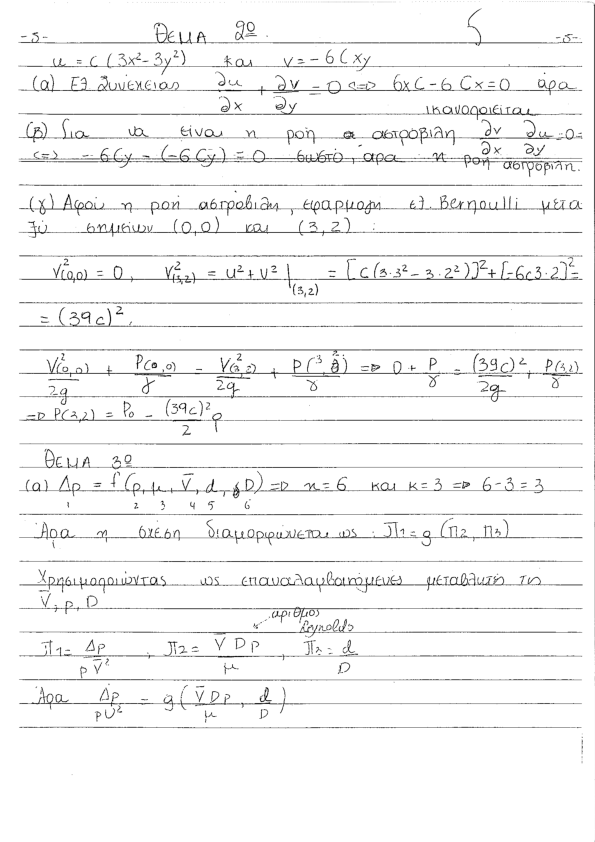 -5- ΘΕΜΑ 2º 5 -5-
u = C (3x² - 3y²) και v = - 6 C xy
(α) Εξ Συνέχειας ∂u/∂x + ∂v/∂y = 0 <=> 6xC - 6 Cx = 0 άρα
ικανοποιείται
(β) Για να είναι η ροή αστρόβιλη ∂v/∂x ∂u/∂y = 0 =
<=> - 6Cy - (-6Cy) = 0 σωστό, άρα η ροή αστρόβιλη.
(γ) Αφού η ροή αστρόβιλη, εφαρμογη εξ. Bernoulli μετα
ξύ σημείων (0,0) και (3,2) :
V²(0,0) = 0, V²(3,2) = u² + v² |(3,2) = [C(3·3² - 3·2²)]² + [-6C3·2]² =
= (39C)².
V²(0,0)/2g + P(0,0)/γ = V²(3,2)/2g + P(3,2)/γ => 0 + P/γ = (39C)²/2g + P(3,2)/γ
=> P(3,2) = P₀ - (39C)²/2 ρ
ΘΕΜΑ 3º
(α) Δp = f (ρ, μ, V̄, d, D) => n = 6 και κ = 3 => 6-3 = 3
1 2 3 4 5 6
Άρα η σχέση διαμορφώνεται ως : Π1 = g (Π2, Π3)
Χρησιμοποιώντας ως επαναλαμβανόμενες μεταβλητή τις
V̄, ρ, D
αριθμος
Reynolds
Π1 = Δp/ρV̄² , Π2 = V̄Dρ/μ , Π3 = d/D
Άρα Δp/ρU² = g ( V̄Dρ/μ , d/D )